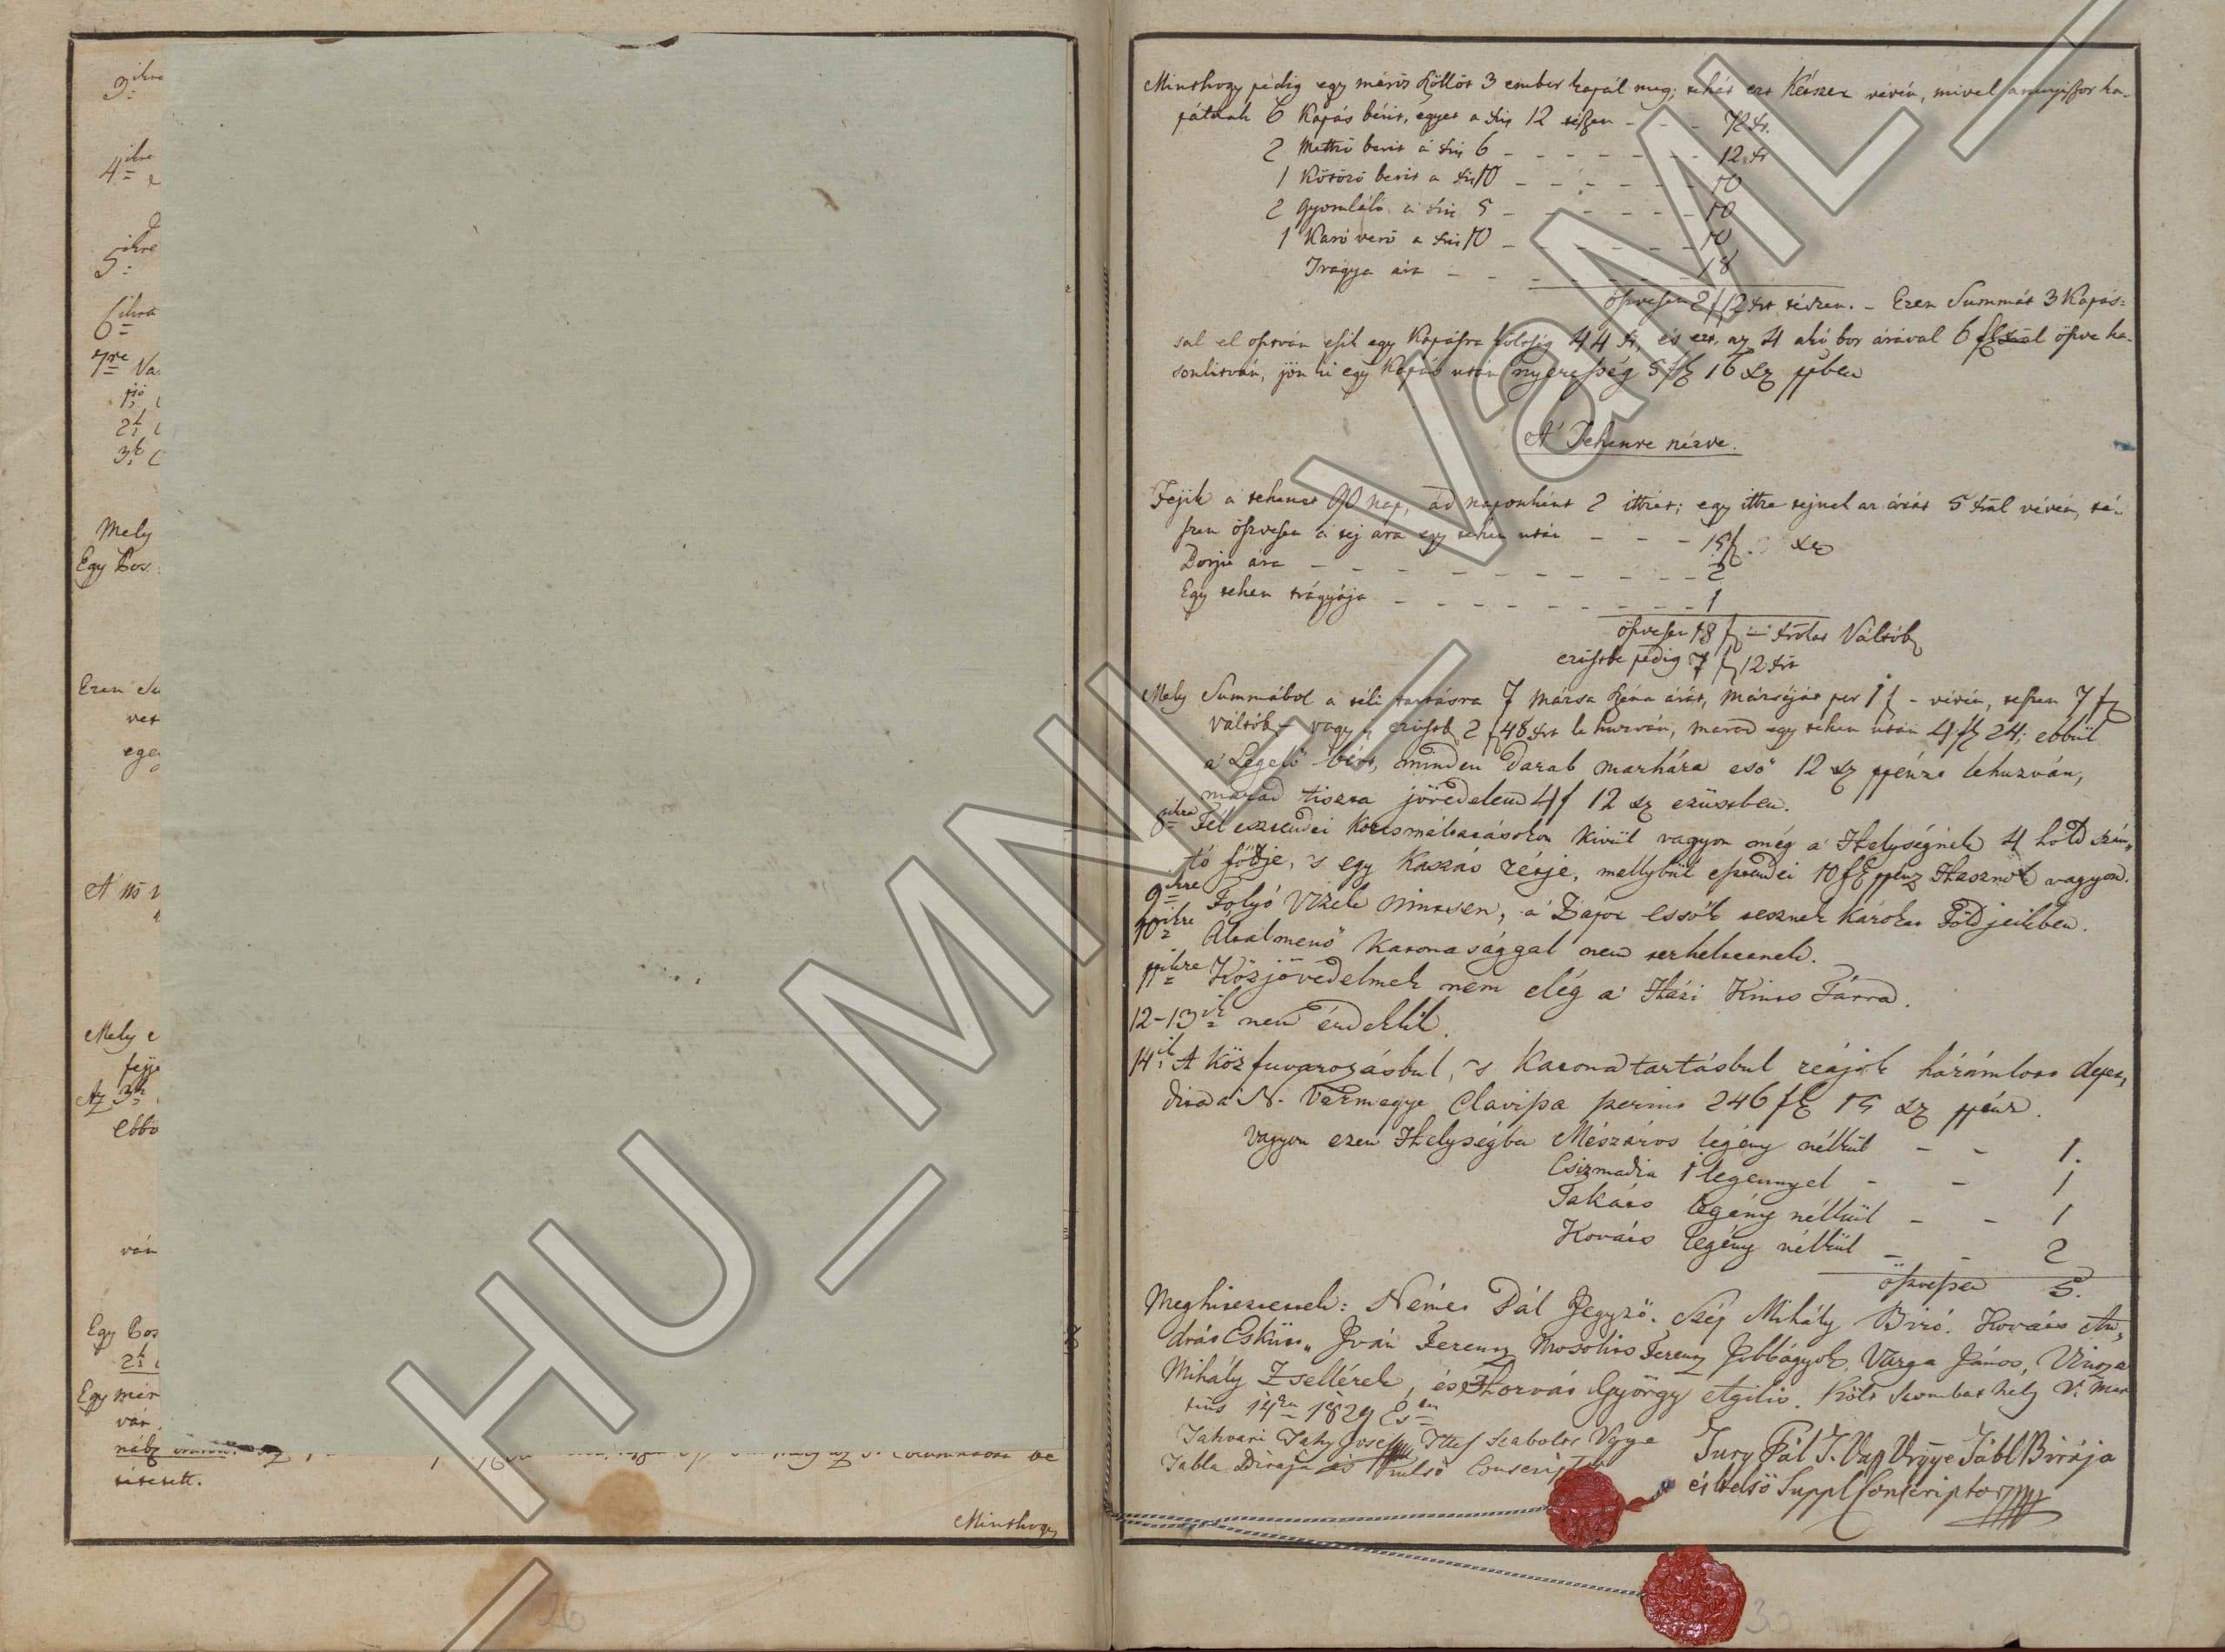 3ikre
4ikre
5ikre
6ikra
7re Va
1ső
2k
3k
Mely
Egy Bor
Ezen Su
vet
ege
A' 10
Mely e
fejje
Az 3k
ebbő
ván
Egy Bor
2k
Egy mér
ván
tetetett.
Minthogy
26
Minthogy pédig egy mérős Köllőt 3 ember kapál meg; tehát ezt Kétszer vévén, mivel annyiszor ka-
pálnak 6 Kapás bérit, egyet a xris 12 tészen - - - 72 xr.
2 Mettző berit á xris 6 - - - - - - - 12 xr
1 Kötöző berit a xris 10 - - - - - - - 10
2 gyomláló á xris 5 - - - - - - - 10
1 Karó verő a xris 10 - - - - - - - 10
Tragya ára - - - - - - - 18
öszvesen 2 f 12 xrt tészen. - Ezen Summát 3 Kapás-
sal el osztván esik egy Kapásra költség 44 xr, és ezt az 4 akó bor árával 6 öszve ha-
sonlitván, jön ki egy Kapás után nyereség 5 f 16 xr ppben
A' Tehenre nézve.
Fejik a tehenet 90 nap, ád naponként 2 ittzét; egy ittze tejnek az árát 5 xrál vévén, té-
szen öszvesen a tej ára egy tehen után - - - 15 f - xr
Borju ára - - - - - - - - - 2
Egy tehen trágyája - - - - - - - - - 1
öszvesen 18 f - xrokat Váltób
ezüstbe pedig 7 f 12 xrt
Mely Summábol a téli tartásra 7 mársa széna árát, mársáját per 1 f - vévén, teszen 7 f
váltób - vagy ezüstb 2 f 48 xrt le huzván, marad egy tehen után 4 f 24; ebbűl
a' Legelő bért, minden darab marhára eső 12 xr ppénzt lehuzván,
marad tiszta jövedelem 4 f 12 xr ezüstben.
8ikra Fél esztendei Kortsmáltatásokon Kivül vagyon még a' Helységnek 4 hóld szán-
tó főldje, 's egy Kaszás rétje, mellybűl esztendei 10 f ppénz Hasznok vagyon.
9ikre Folyó Vizek nintsen, a' Zápor essők tesznek károkat Főldjeikben.
10ikre Általmenő Katonasággal nem terheltetnek.
11ikre Közjövedelmek nem elég a' Házi Kints Tárra.
12-13ik nem érdekli.
14ik A Köz fuvarozásbul, 's Katonatartásbul reájok hárámlott
a N. Vármegye Clavissa szerint 246 f 15 xr ppénz.
Vagyon ezen Helységba Mészáros legény nélkűl - - 1.
Csizmadia 1 legennyel - - 1
Takáts legény nélkűl - - 1
Kováts legény nélkűl - - 2
öszvesen 5.
Meghitettettek: Német Pál Jegyző. Szép Mihály Biró. Kováts An-
drás Esküt„ Iván Ferentz Mosolits Ferentz Jobbágyok, Varga János, Vintze
Mihály Zsellérek, és Horvát György Agilis. Költ Szombathely V. Mar
tius 14én 1829 Es én
Tahvari Tahy Josef Ttes Szabolts Vgye
Tabla Birája és Külső Conscriptor
Jury Pál T. Vas Vrgye Tábl Birája
és belső Suppl Conscriptor
30
HU_MNL_VaML_I